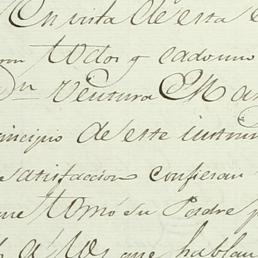 En vista de esta
todos y cada uno
Dn Ventura Ma
incipio de este instru
satisfaccion confiesan
que tomó su Padre p
á los que hablan